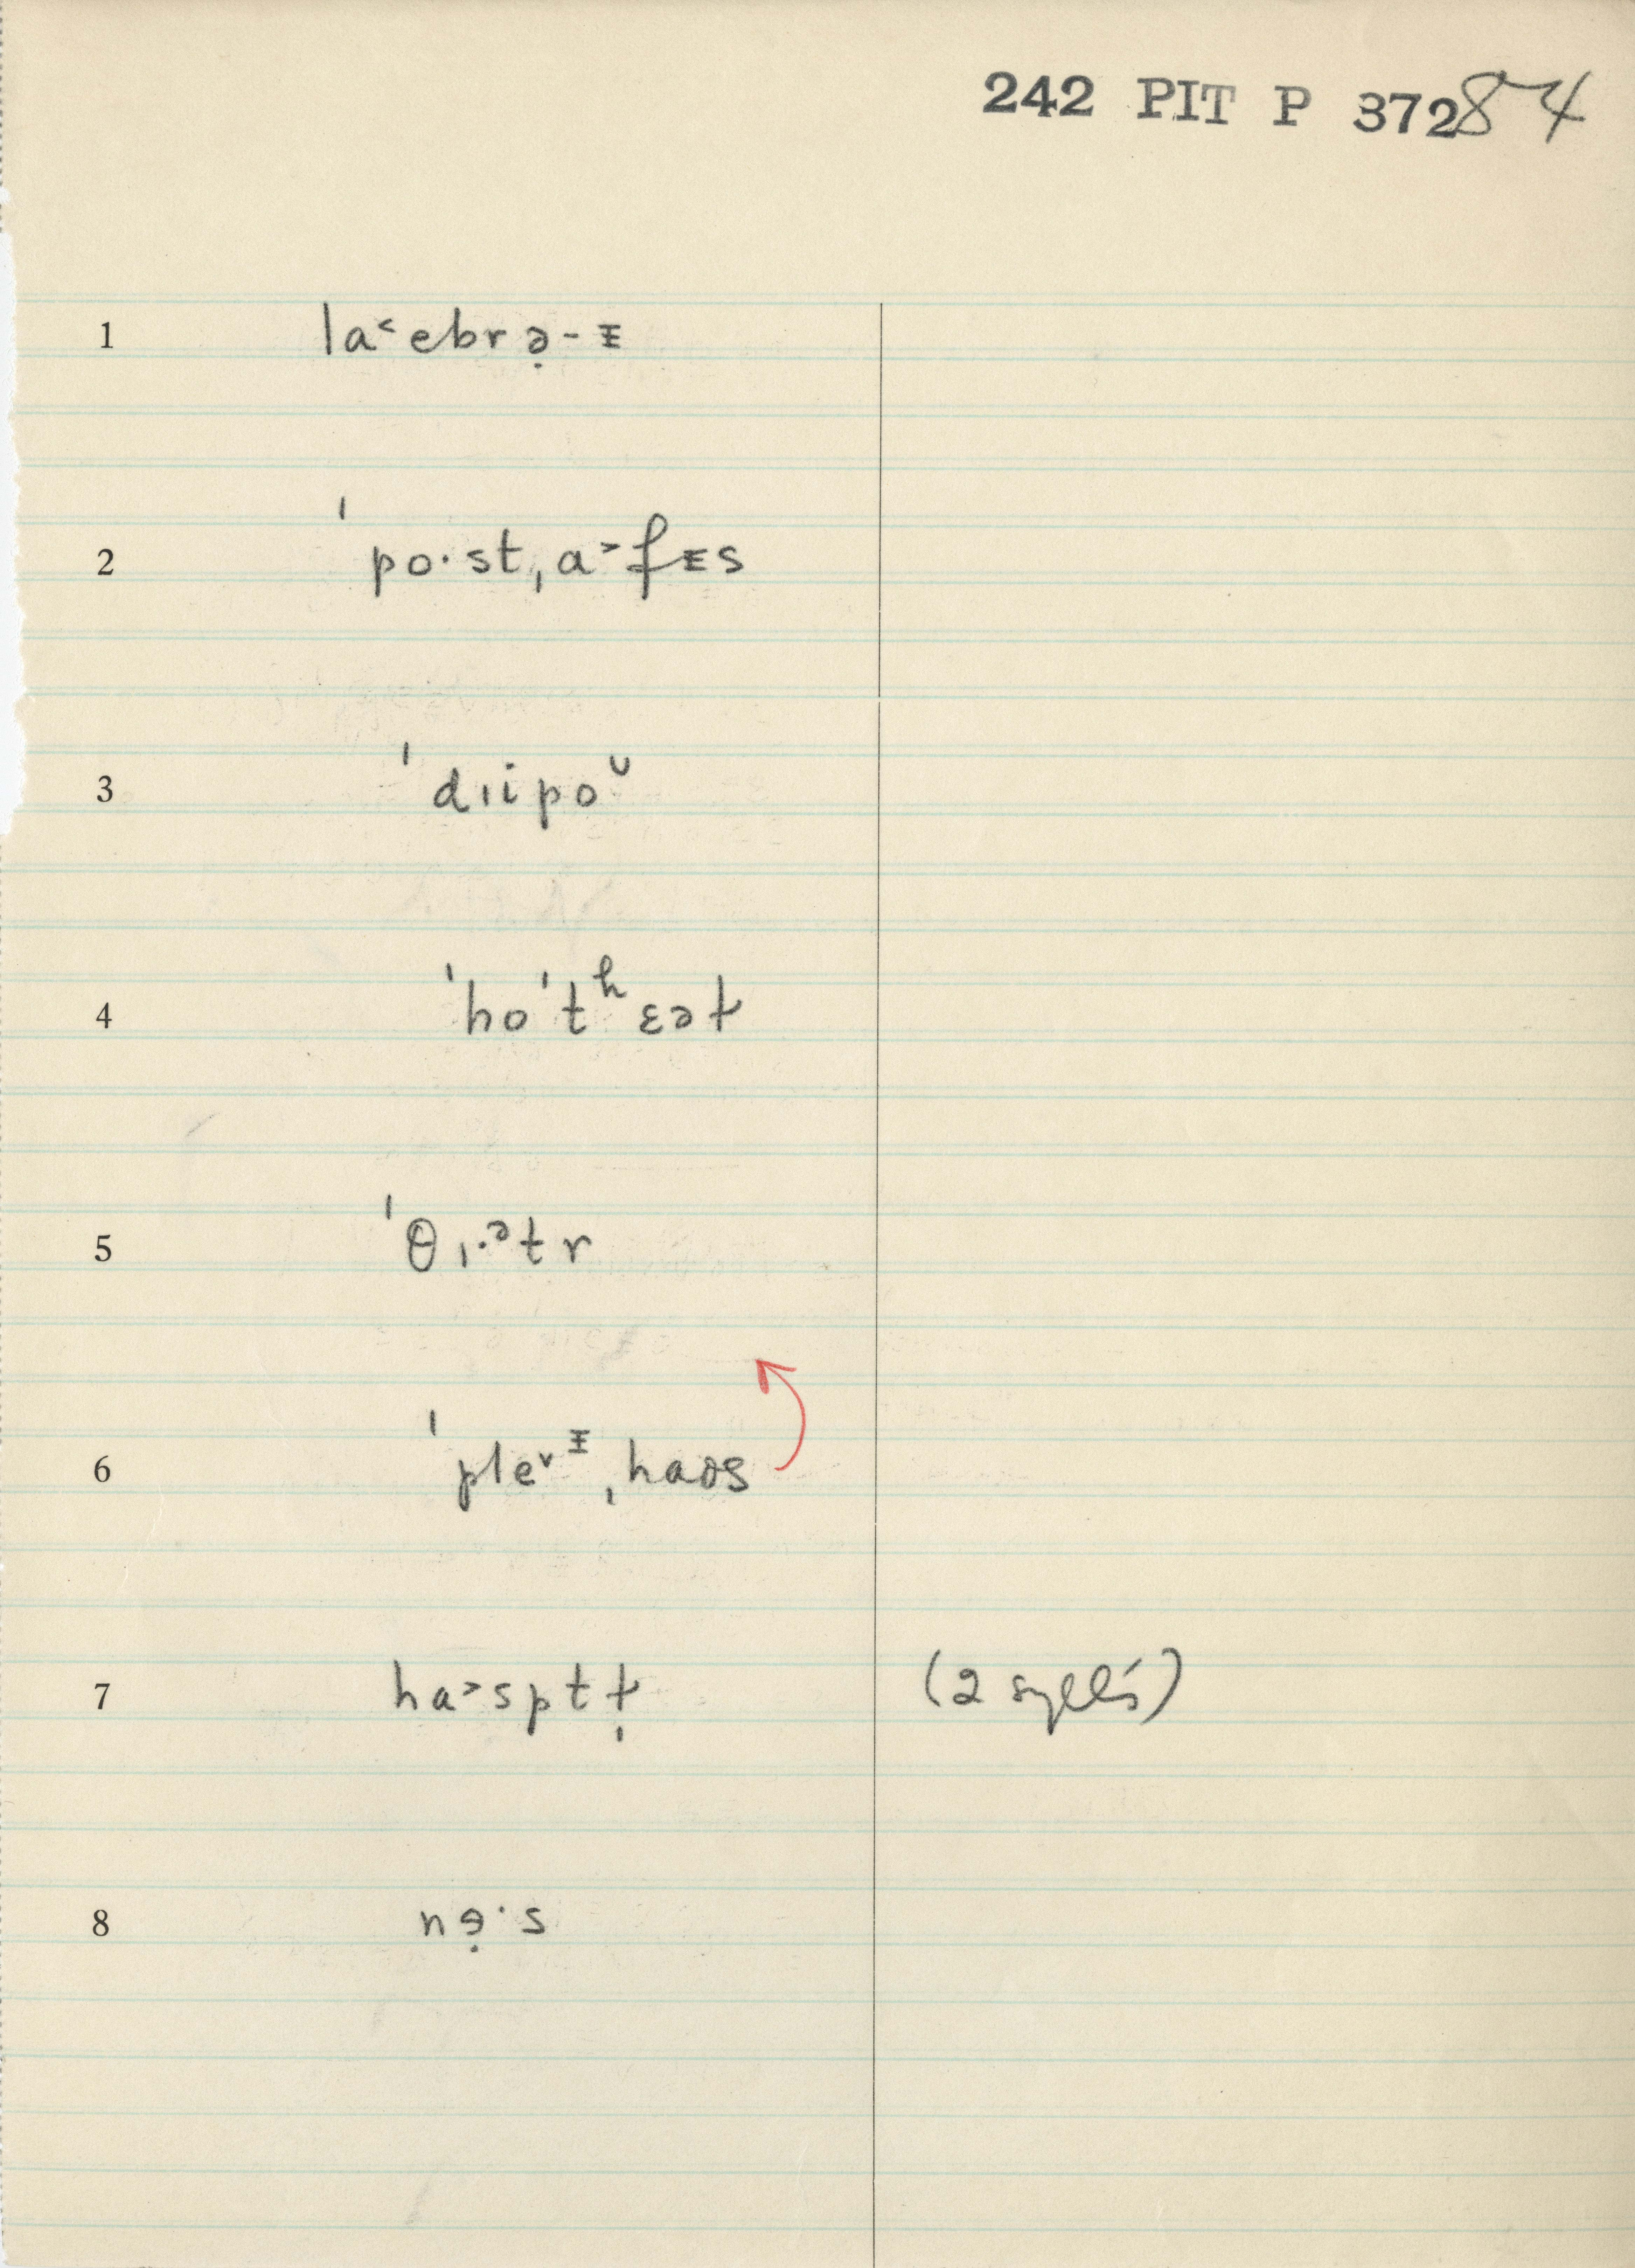 242 PIT P 372 84
1 la˂ebrə̣-ᵻ
2 ˈpo·stˌa˃fᵻs
3 ˈdɪipoᴗ
4 ˈhoˈtʰɛəɫ
5 ˈθɪ·ᵊtr
6 ˈple˅ᵻˌhaʊs
7 ha˃sptɫ̩ (2 sylls)
8 nɘ̣·s